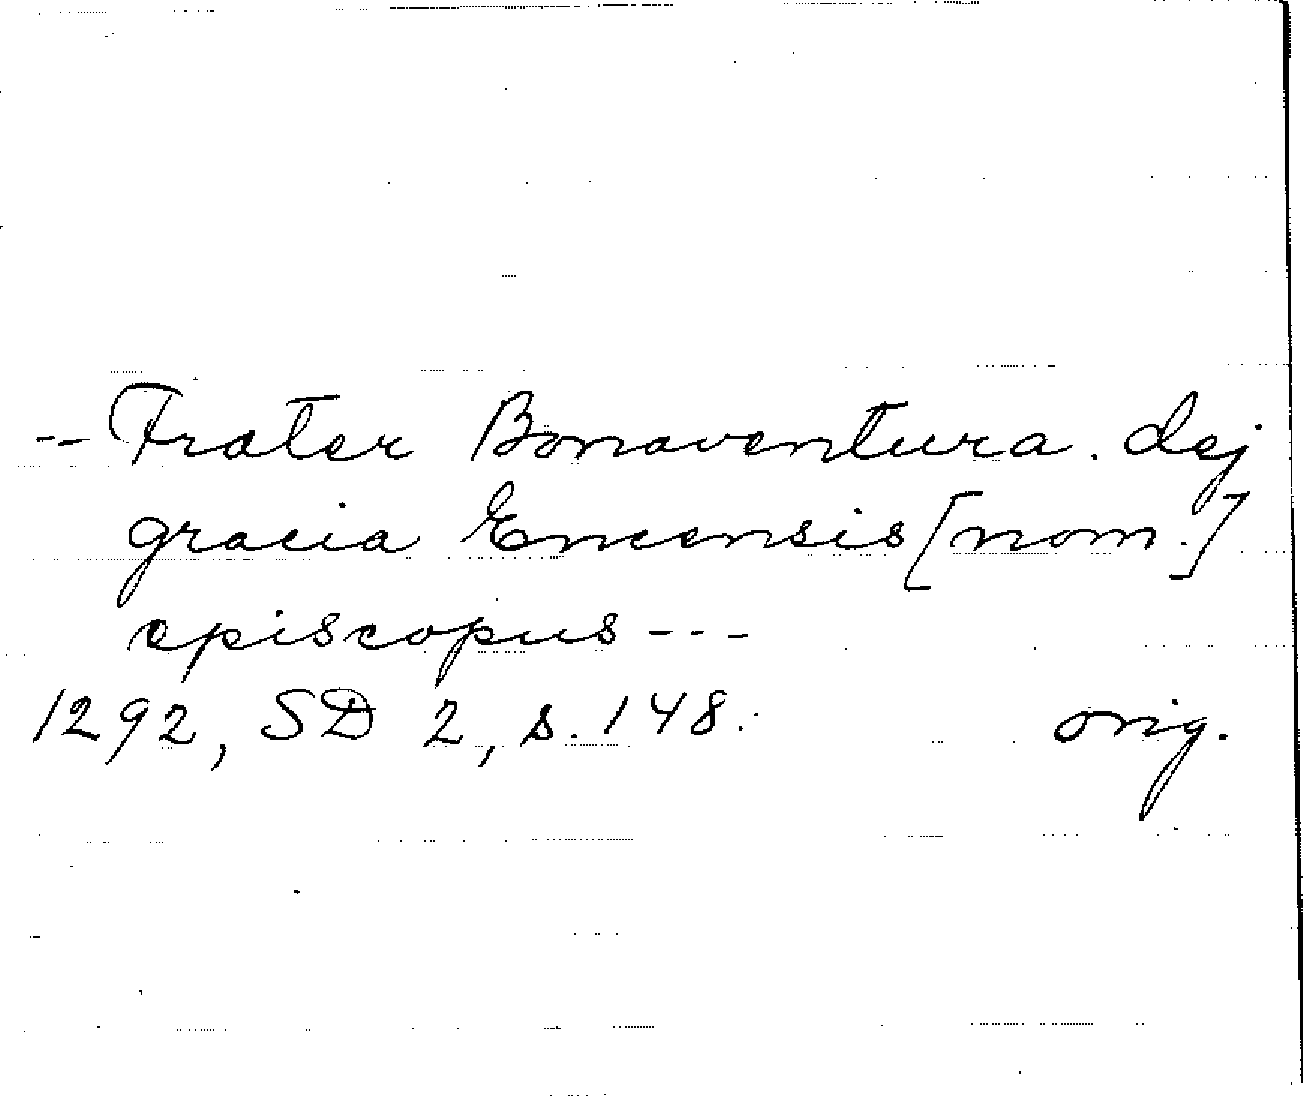 -- Frater Bonaventura. dej
gracia Encensis [nom.]
episcopus ---
1292, SD 2, s. 148. orig.